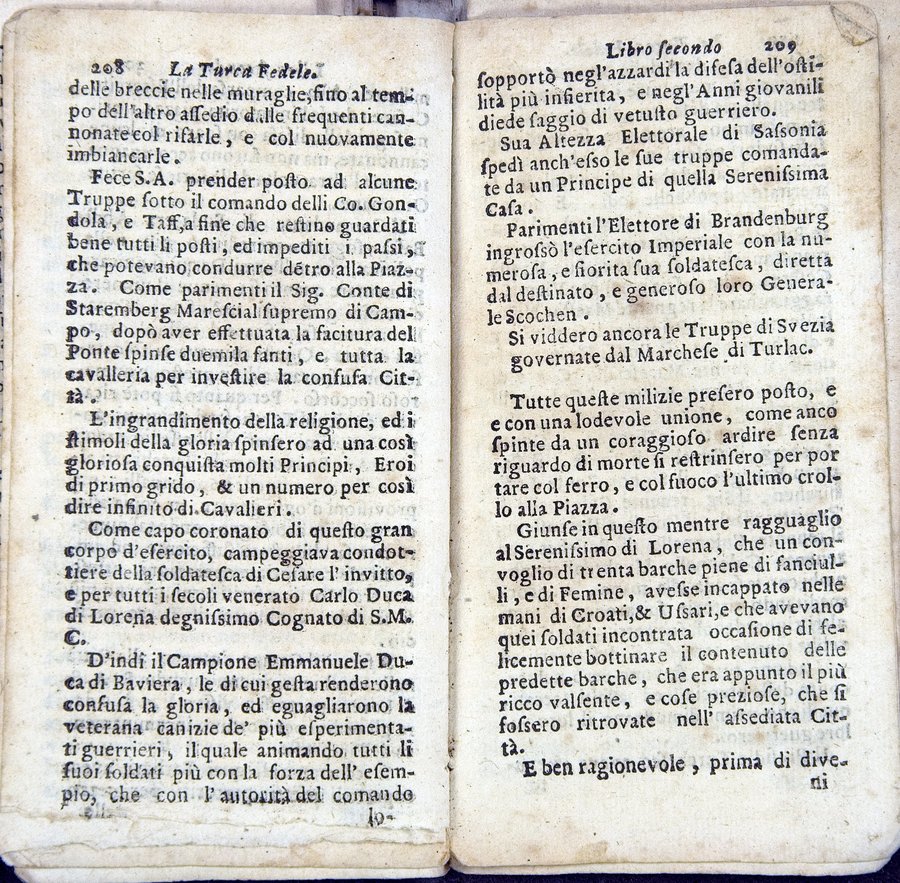 208 La Turca Fedele.
delle breccie nelle muraglie, fino al tem-
po dell'altro assedio dalle frequenti can-
nonate col rifarle, e col nuovamente
imbiancarle.
Fece S.A. prender posto ad alcune
Truppe sotto il comando delli Co. Gon-
dola, e Taff, a fine che restino guardati
bene tutti li posti, ed impediti i passi,
che potevano condurre dẽtro alla Piaz-
za. Come parimenti il Sig. Conte di
Staremberg Marescial supremo di Cam-
po, dopò aver effettuata la facitura del
Ponte spinse duemila fanti, e tutta la
cavalleria per investire la confusa Cit-
tà.
L'ingrandimento della religione, ed i
stimoli della gloria spinsero ad una così
gloriosa conquista molti Principi, Eroi
di primo grido, & un numero per così
dire infinito di Cavalieri.
Come capo coronato di questo gran
corpo d'esercito, campeggiava condot-
tiere della soldatesca di Cesare l'invitto,
e per tutti i secoli venerato Carlo Duca
di Lorena degnissimo Cognato di S.M.
C.
D'indi il Campione Emmanuele Du-
ca di Baviera, le di cui gesta renderono
confusa la gloria, ed eguagliarono la
veterana canizie de' più esperimenta-
ti guerrieri, il quale animando tutti li
suoi soldati più con la forza dell'esem-
pio, che con l'autorità del comando
so-
Libro secondo 209
sopportò negl'azzardi la difesa dell'osti-
lità più infierita, e negl'Anni giovanili
diede saggio di vetusto guerriero.
Sua Altezza Elettorale di Sassonia
spedì anch'esso le sue truppe comanda-
te da un Principe di quella Serenissima
Casa.
Parimenti l'Elettore di Brandenburg
ingrossò l'esercito Imperiale con la nu-
merosa, e fiorita sua soldatesca, diretta
dal destinato, e generoso loro Genera-
le Scochen.
Si viddero ancora le Truppe di Svezia
governate dal Marchese di Turlac.
Tutte queste milizie presero posto, e
e con una lodevole unione, come anco
spinte da un coraggioso ardire senza
riguardo di morte si restrinsero per por
tare col ferro, e col fuoco l'ultimo crol-
lo alla Piazza.
Giunse in questo mentre ragguaglio
al Serenissimo di Lorena, che un con-
voglio di trenta barche piene di fanciul-
li, e di Femine, avesse incappato nelle
mani di Croati, & Ussari, e che avevano
quei soldati incontrata occasione di fe-
licemente bottinare il contenuto delle
predette barche, che era appunto il più
ricco valsente, e cose preziose, che si
fossero ritrovate nell'assediata Cit-
tà.
E ben ragionevole, prima di dive-
ni